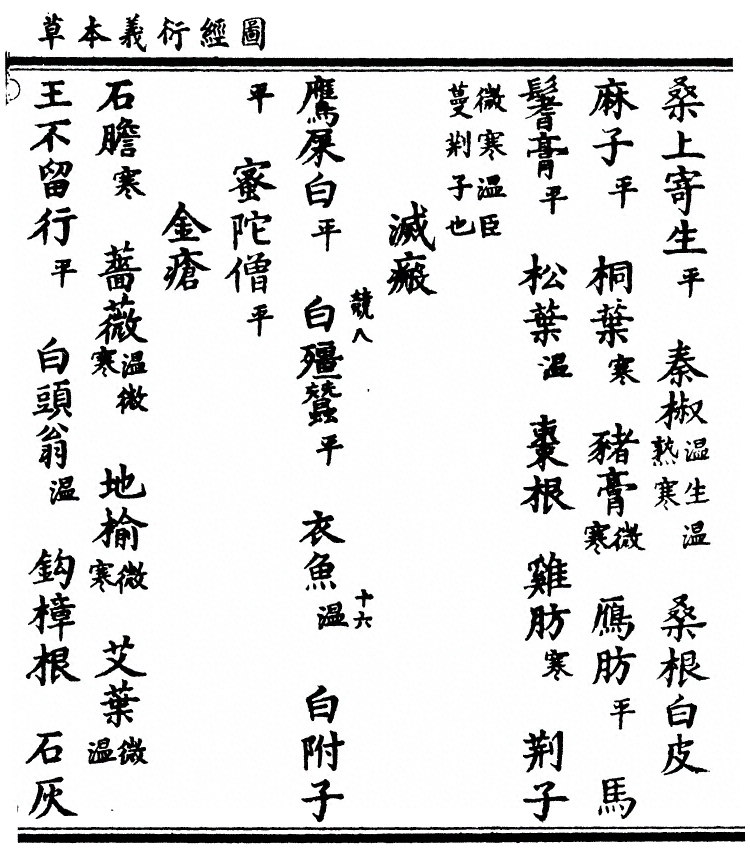 圖經衍義本草
桑上寄生平　秦椒温生温熟寒　桑根白皮
麻子平　桐葉寒　豬膏微寒　鴈肪平　馬
鬐膏平　松葉温　棗根　雞肪寒　荆子
微寒温臣
蔓荆子也
滅瘢
競八　十六
鷹屎白平　白殭蠶平　衣魚温　白附子
平　蜜陀僧平
金瘡
石膽寒　薔薇温微寒　地榆微寒　艾葉微温
王不留行平　白頭翁温　鈎樟根　石灰